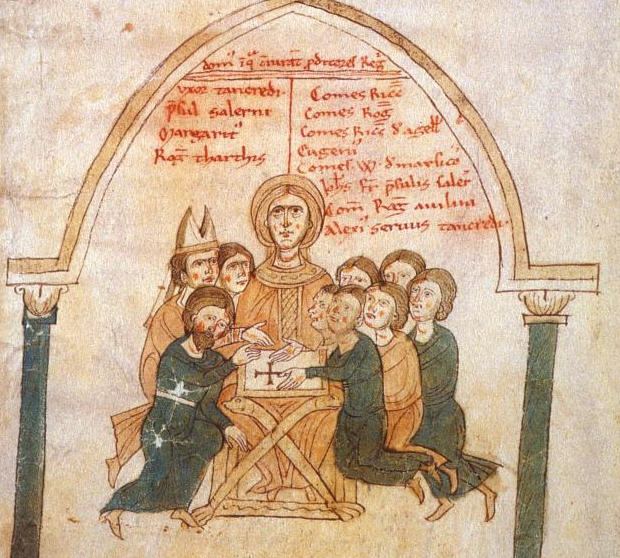 uxor tancredi
psul salerni
Margarit'
Rog' tharthis
Comes Ricc
Comes Rog
Comes Ricc d'agell
Eugeni'
Comes W. d'marsico
Johs fr psulis saler
Com Rog auilini
Alexi' seruus tancredi